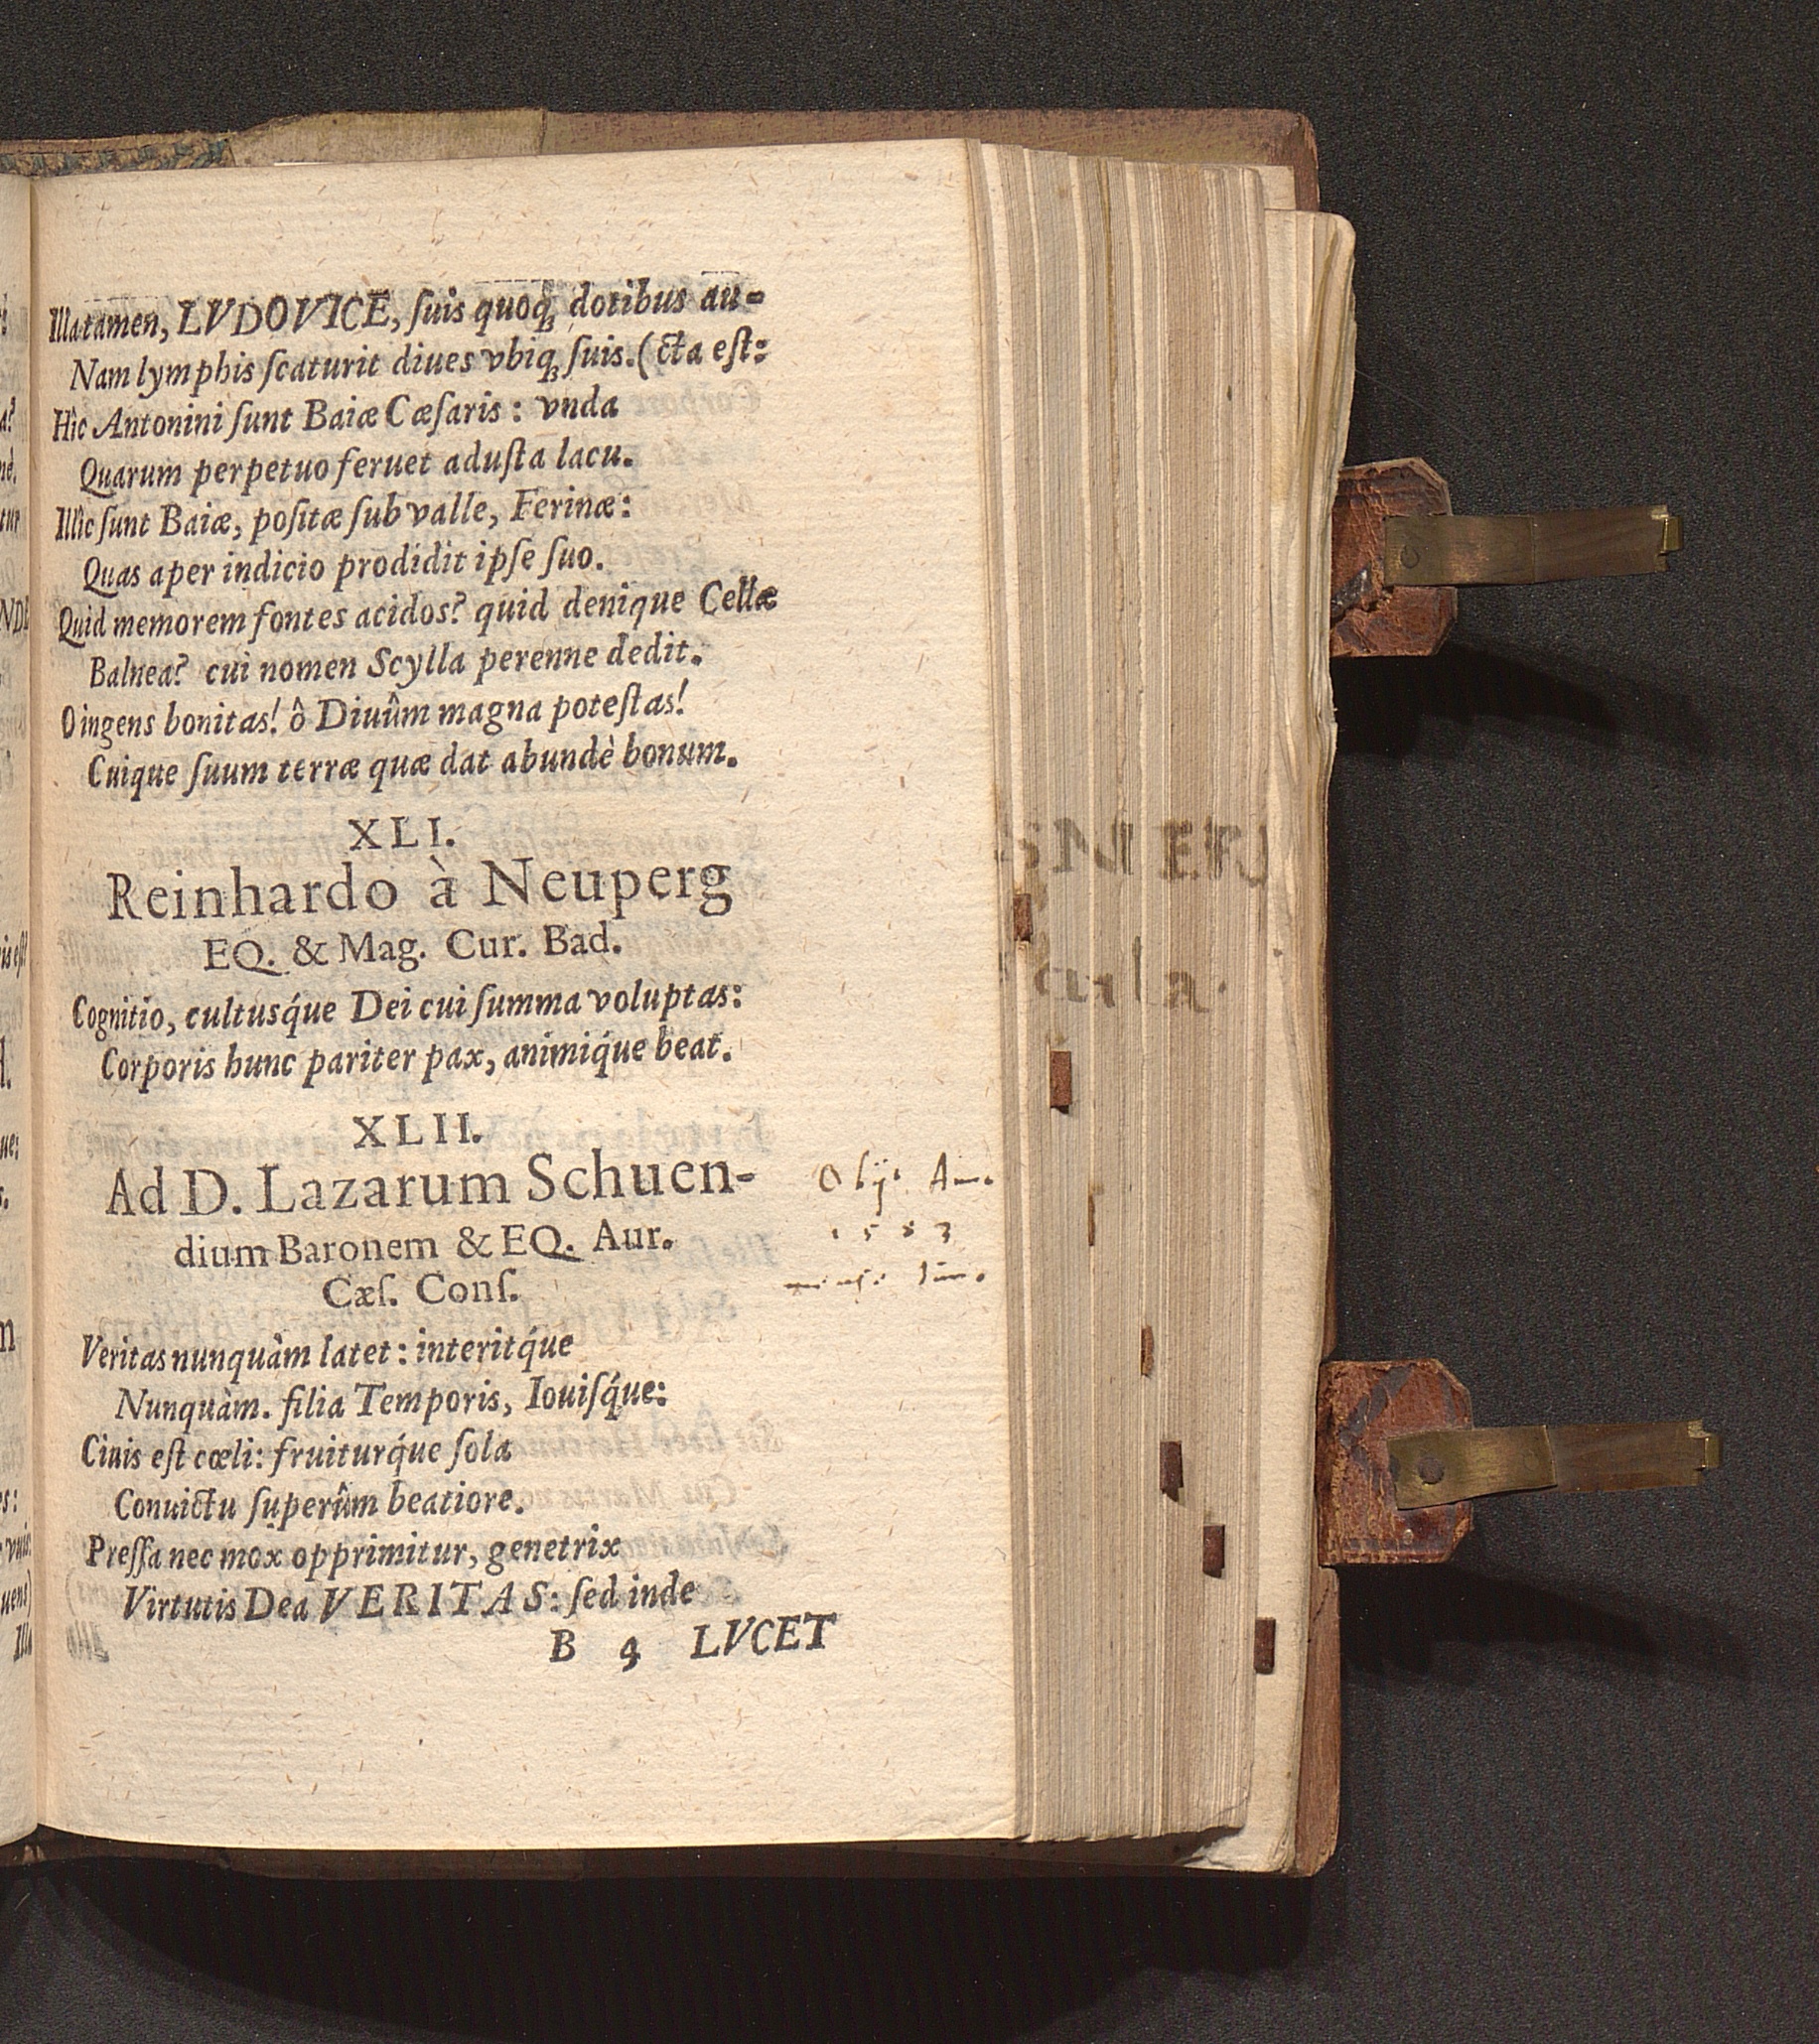 Illa tamen, LVDOVICE, ſuis quoq; dotibus au-
Nam lymphis ſcaturit diues vbiq; ſuis. (cta eſt:
Hîc Antonini ſunt Baiæ Cæſaris: vnda
Quarum perpetuo feruet aduſta lacu.
Illîc ſunt Baiæ, poſitæ ſub valle, Ferinæ:
Quas aper indicio prodidit ipſe ſuo.
Quid memorem fontes acidos? quid denique Cellæ
Balnea? cui nomen Scylla perenne dedit.
O ingens bonitas! ô Diuûm magna poteſtas!
Cuique ſuum terræ quæ dat abundè bonum.
XLI.
Reinhardo à Neuperg
EQ. & Mag. Cur. Bad.
Cognitio, cultusq́ue Dei cui ſumma voluptas:
Corporis hunc pariter pax, animiq́ue beat.
XLII.
Ad D. Lazarum Schuen-
dium Baronem & EQ. Aur.
Cæſ. Conſ.
Obijt
1583
Veritas nunquàm latet: interitq́ue
Nunquàm. filia Temporis, Iouiſq́ue:
Ciuis eſt cœli: fruiturq́ue ſola
Conuictu ſuperûm beatiore.
Preſſa nec mox opprimitur, genetrix
Virtutis Dea VERITAS: ſed inde
B 4 LVCET